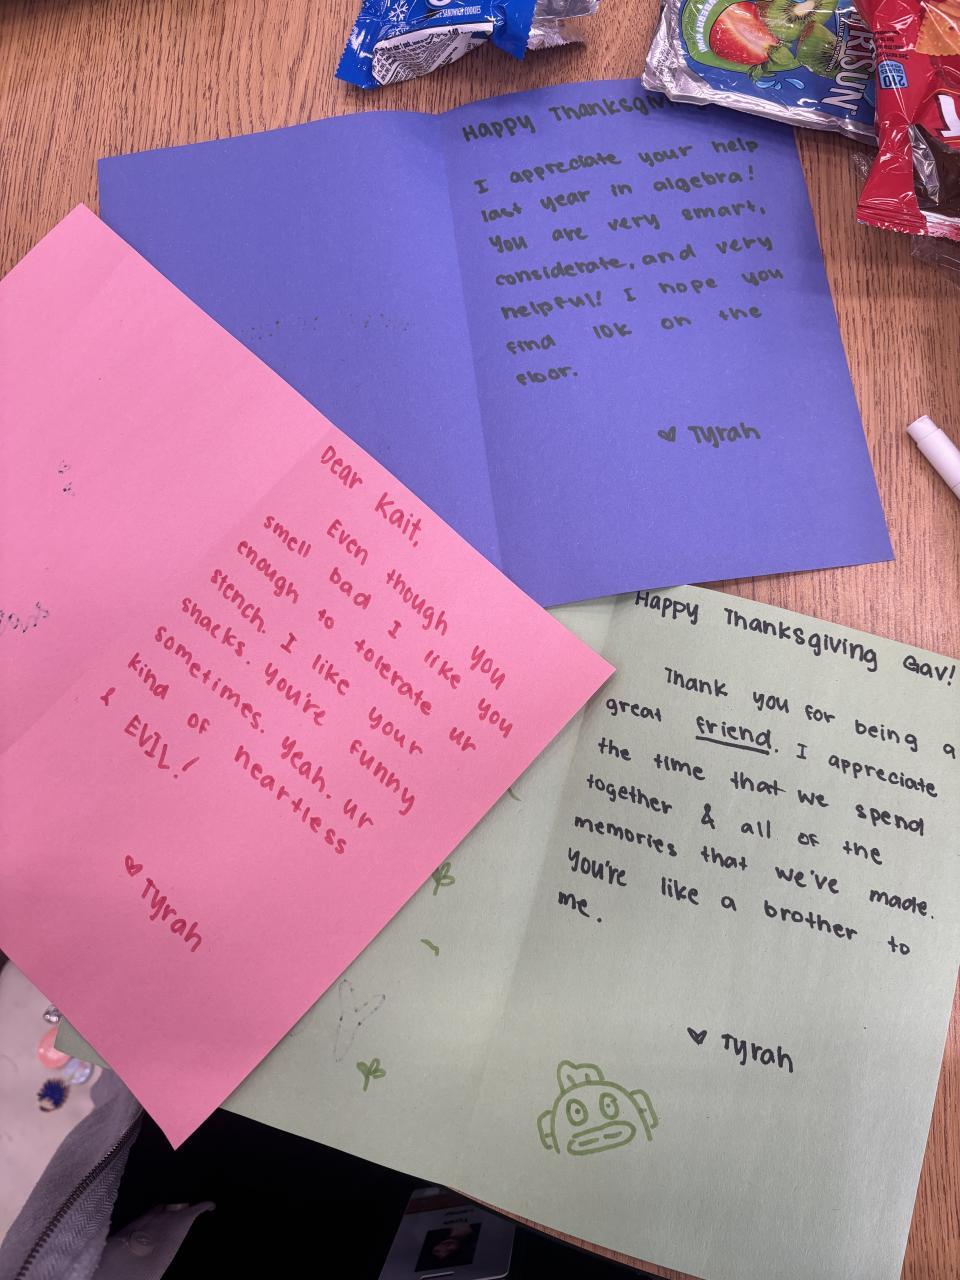 Happy Thanksgiv
I appreciate your help
last year in algebra!
You are very smart,
considerate, and very
helpful! I hope you
find 10k on the
floor.
♥ Tyrah
Dear Kait,
Even though you
smell bad I like you
enough to tolerate ur
stench. I like your
snacks. You're funny
sometimes. Yeah. ur
kind of heartless
& EVIL!
♥ Tyrah
Happy Thanksgiving Gav!
Thank you for being a
great friend. I appreciate
the time that we spend
together & all of the
memories that we've made.
You're like a brother to
me.
♥ Tyrah
SANDWICH COOKIES
RISUN
210
CALORIES